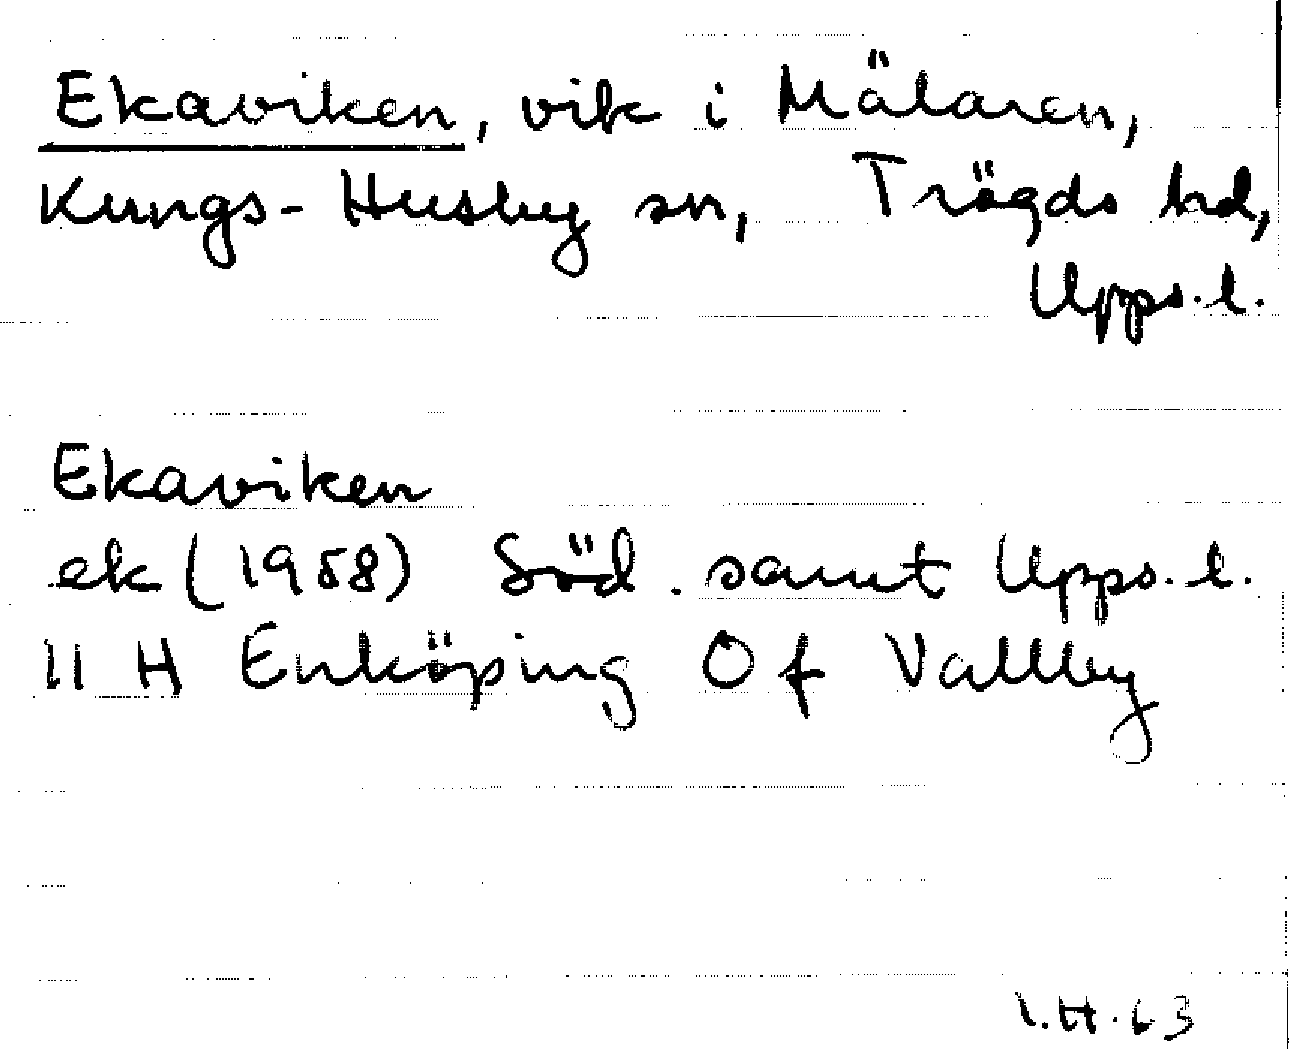 Ekaviken, vik i Mälaren,
Kungs-Husby sn, Trögds hd,
Upps. l.
Ekaviken
ek (1958) Söd. samt Upps. l.
11 H Enköping Of Vallby
I.H. 63